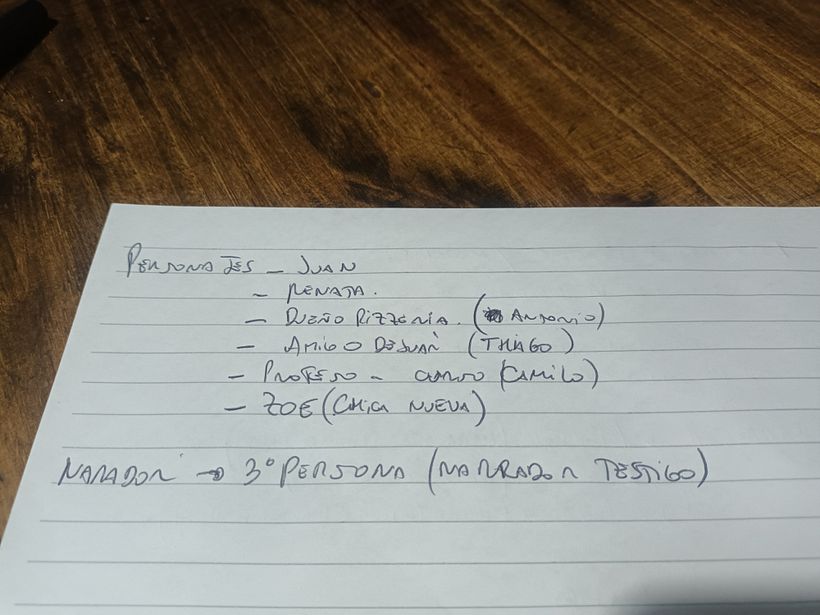 PERSONAJES - JUAN
- RENATA.
- DUEÑO PIZZERIA. (ANTONIO)
- AMIGO DE JUAN (THIAGO)
- PROFESO - CURSO (CAMILO)
- ZOE (CHICA NUEVA)
NARADOR → 3° PERSONA (NARRADOR TESTIGO)